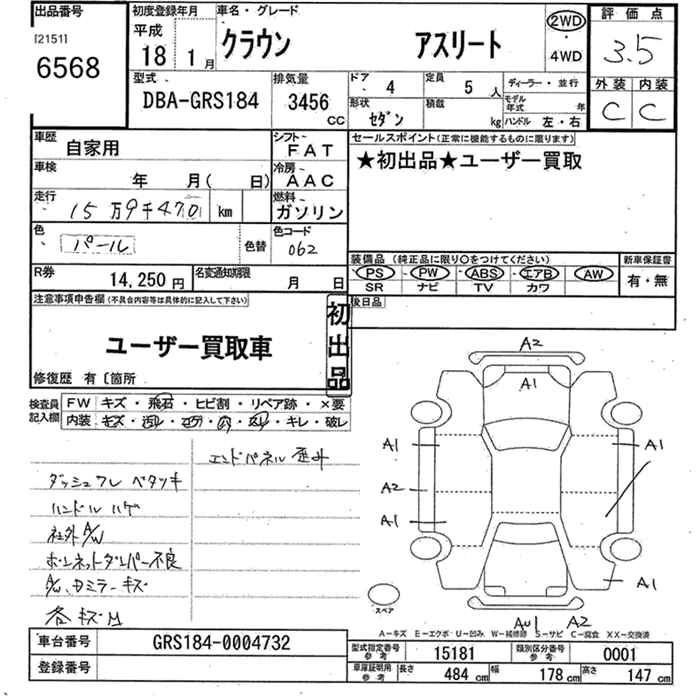 出品番号
[2151]
6568
初度登録年月
平成
18 年 1 月
車名・グレード
クラウン アスリート
2WD
・
4WD
評価点
3.5
外装 内装
C C
型式
DBA-GRS184
排気量
3456 CC
ドア 4
定員 5 人
形状 セダン
積載 kg
ディーラー・並行
モデル年式 年
ハンドル 左・右
車歴 自家用
シフト FAT
車検 年 月( 日)
冷房 AAC
走行 15万9千470 km
燃料 ガソリン
色 パール 色替
色コード 062
R券 14,250 円
名変通知期限 月 日
セールスポイント(正常に機能するものに限ります)
★初出品★ユーザー買取
装備品 (純正品に限り○をつけてください)
PS PW ABS エアB AW
SR ナビ TV カワ
新車保証書
有・無
後日品
注意事項申告欄(不具合内容等は具体的に記入して下さい)
ユーザー買取車
初出品
修復歴 有〔箇所
検査員記入欄
FW キズ・飛石・ヒビ割・リペア跡・×要
内装
キレ・破レ
エンドパネル歪み
ダッシュフレ ベタツキ
ハンドル ハゲ
社外A/W
ボンネットダンパー不良
A/W、ドミラーキズ
各キズM
A2
A1
A1
A1
A2
A1
A1
A1
A2
スペア
A−キズ E−エクボ U−凹み W−補修跡 S−サビ C−腐食 XX−交換済
車台番号 GRS184-0004732
登録番号
型式指定番号 参考 15181
類別区分番号 参考 0001
車庫証明用 参考 長さ 484 cm 幅 178 cm 高さ 147 cm